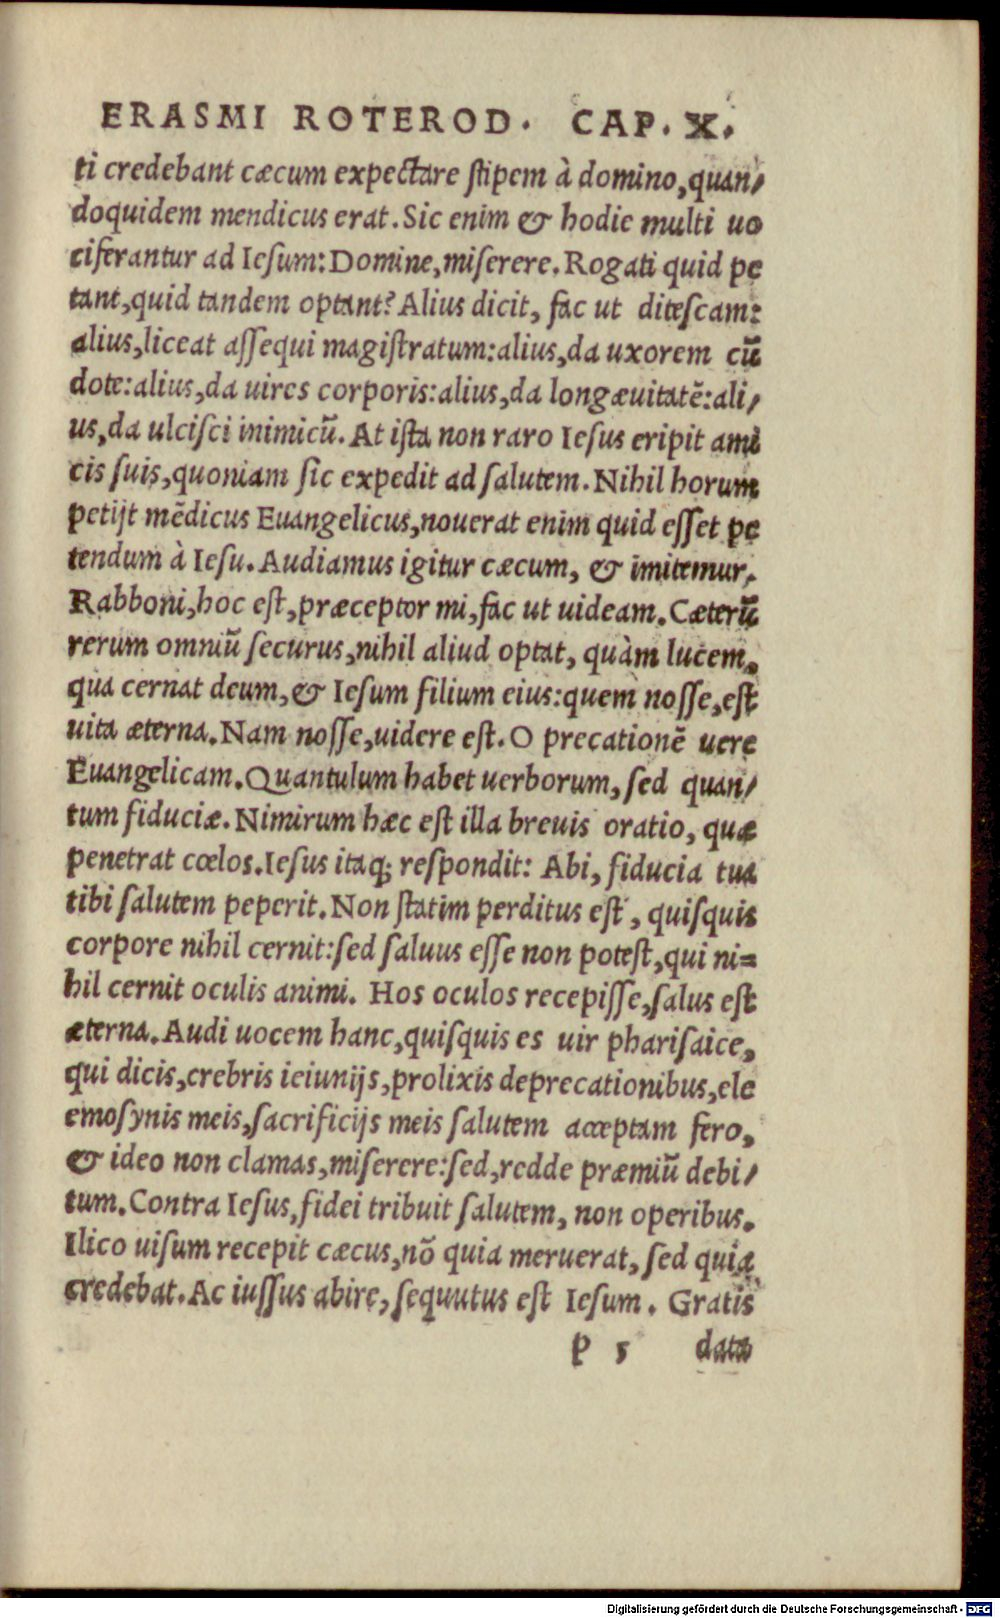 ERASMI ROTEROD. CAP. X.
ti credebant cæcum expectare stipem à domino, quan/
doquidem mendicus erat. Sic enim & hodie multi uo
ciferantur ad Iesum: Domine, miserere. Rogati quid pe
tant, quid tandem optant? Alius dicit, fac ut ditescam:
alius, liceat assequi magistratum: alius, da uxorem cū
dote: alius, da uires corporis: alius, da longæuitatē: ali/
us, da ulcisci inimicū. At ista non raro Iesus eripit ami
cis suis, quoniam sic expedit ad salutem. Nihil horum
petijt mēdicus Euangelicus, nouerat enim quid esset pe
tendum à Iesu. Audiamus igitur cæcum, & imitemur.
Rabboni, hoc est, præceptor mi, fac ut uideam. Cæterū
rerum omniū securus, nihil aliud optat, quàm lucem,
qua cernat deum, & Iesum filium eius: quem nosse, est
uita æterna. Nam nosse, uidere est. O precationē uere
Euangelicam. Quantulum habet uerborum, sed quan/
tum fiduciæ. Nimirum hæc est illa breuis oratio, quæ
penetrat cœlos. Iesus itaq; respondit: Abi, fiducia tua
tibi salutem peperit. Non statim perditus est, quisquis
corpore nihil cernit: sed saluus esse non potest, qui ni=
hil cernit oculis animi. Hos oculos recepisse, salus est
æterna. Audi uocem hanc, quisquis es uir pharisaice,
qui dicis, crebris ieiunijs, prolixis deprecationibus, ele
emosynis meis, sacrificijs meis salutem acceptam fero,
& ideo non clamas, miserere: sed, redde præmiū debi/
tum. Contra Iesus, fidei tribuit salutem, non operibus.
Ilico uisum recepit cæcus, nō quia meruerat, sed quia
credebat. Ac iussus abire, sequutus est Iesum. Gratis
P 5 data
Digitalisierung gefördert durch die Deutsche Forschungsgemeinschaft - DFG